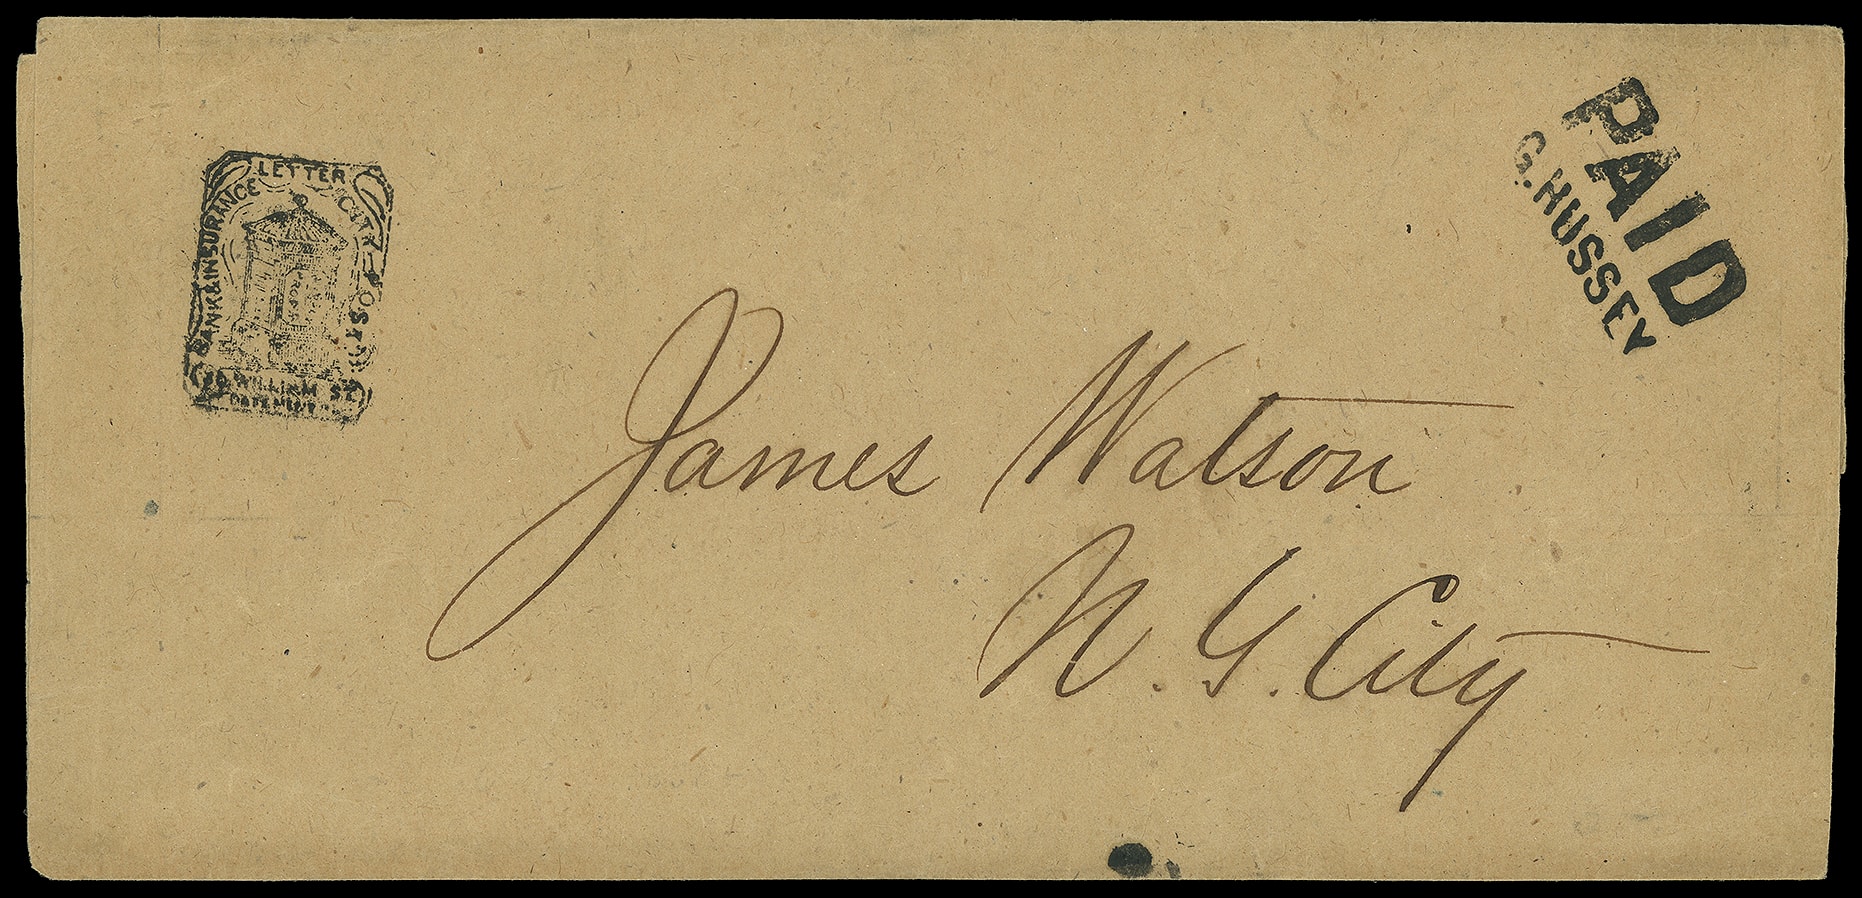 LETTER
BANK & INSURANCE
CITY POST
WILLIAM ST.
BASEMENT
PAID
G. HUSSEY
James Watson
N. Y. City